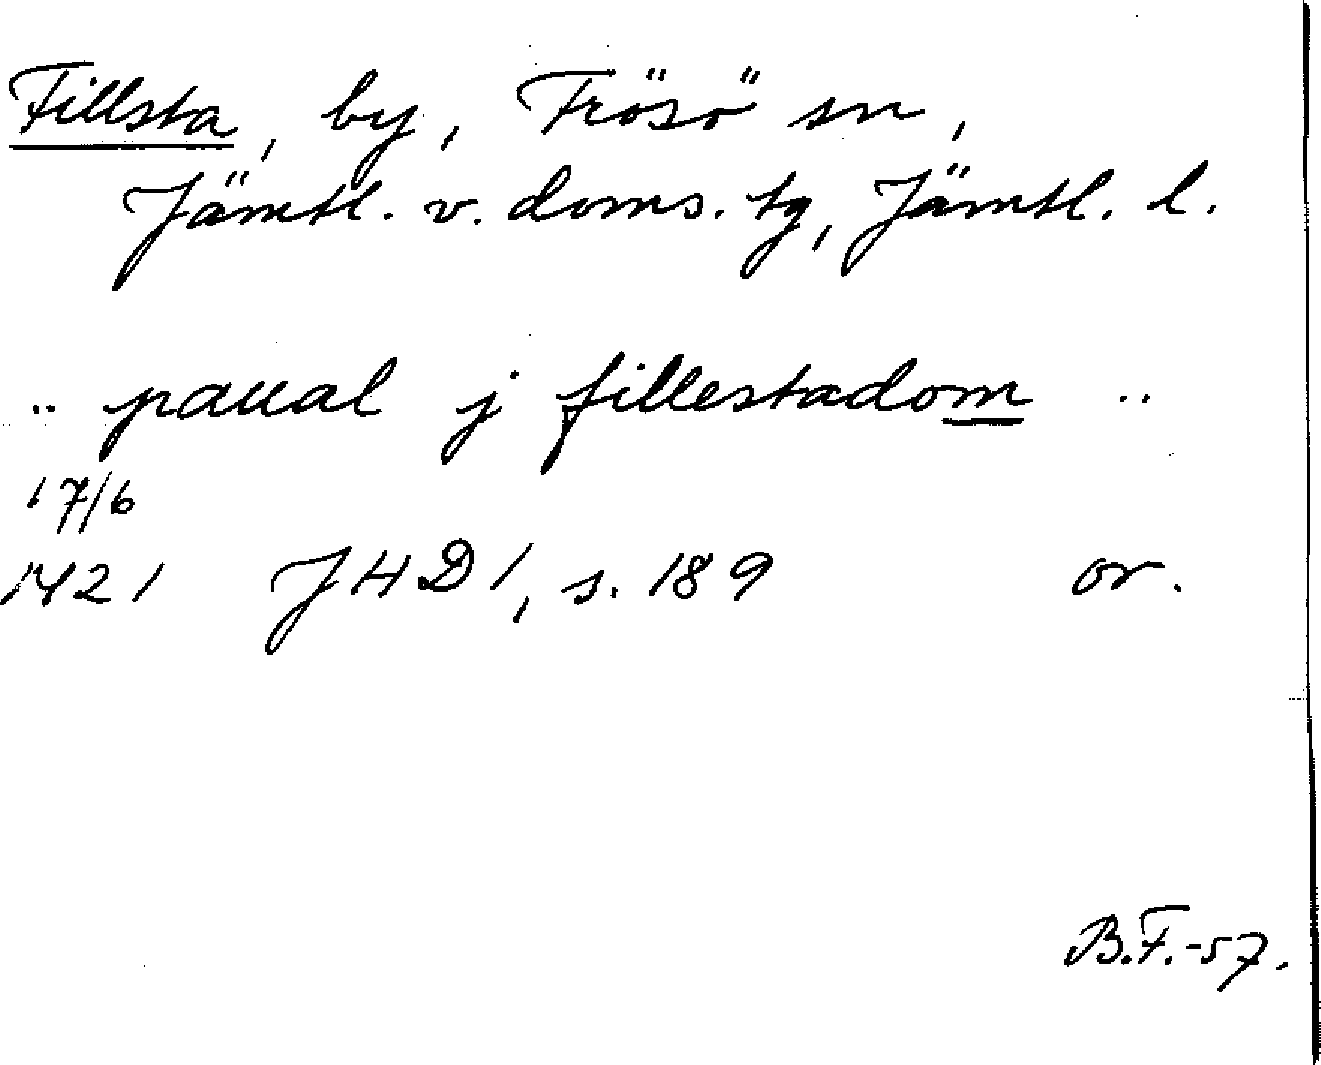 Fillsta, by, Frösö sn,
Jämtl. v. doms. tg, Jämtl. l.
.. pauual j fillestadom ..
17/6
1421 JHD 1, s. 189 or.
B.F.-57.